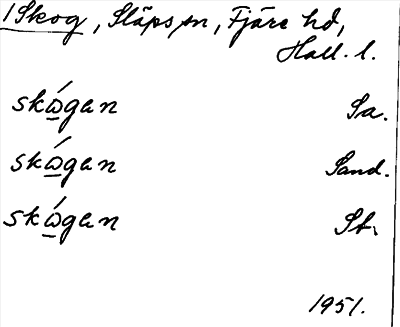 1 Skog, Släps sn, Fjäre hd,
Hall. l.
skώ̲gan Sa.
skώ̲gan Sand.
skώ̲gan St.
1951.